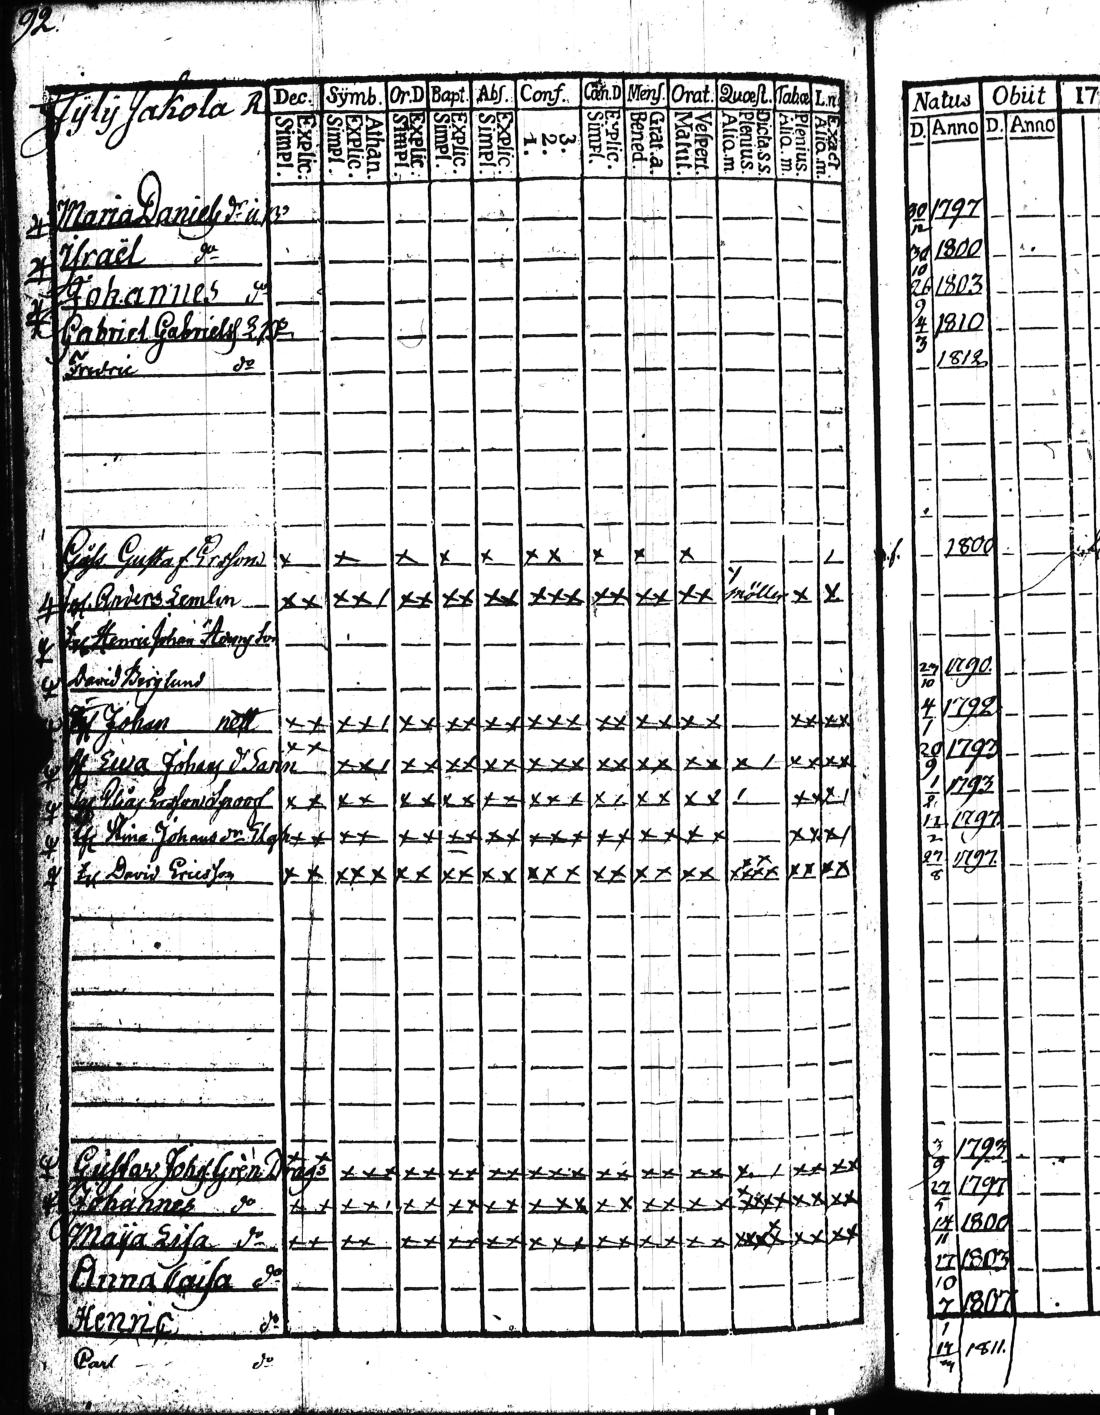 92.
Jÿlÿ Jakola R
Dec. Sÿmb. Or.D Bapt. Abs. Conf. Cœn.D Mens. Orat. Quæst. Tabæ L.n.
Simpl. Explic. Simpl. Explic. Athan. Simpl. Explic. Simpl. Explic. Simpl. Explic. 1. 2. 3. Simpl. Explic. Bened. Grat.a. Matut. Vespert. Aliq.m Plenius. Dicta.s.s. Aliq.m. Plenius. Aliq.m. Exact
Natus Obiit 17
D. Anno D. Anno
Maria Daniels dr 30/12 1797
Israël do 30/10 1800
Johannes do 26/9 1803
Gabriel Gabriels 4/3 1810
Fredric do 1812
Gustaf Ersson 1800
Anders Lemlin möller
Henric Johan
David Berglund 29/10 1790.
Johan nett 4/1 1792
Ewa Johans d 20/9 1793
1793
Stina Johans dr 12/2 1797
David Ericsson 27/8 1797.
Gustav Johs Grèn Drags 3/9 1793
Johannes do 27/5 1797
Maija Lisa do 14/11 1800
Anna Caisa do 27/10 1803
Henric do 7/1 1807
Carl do 1811.